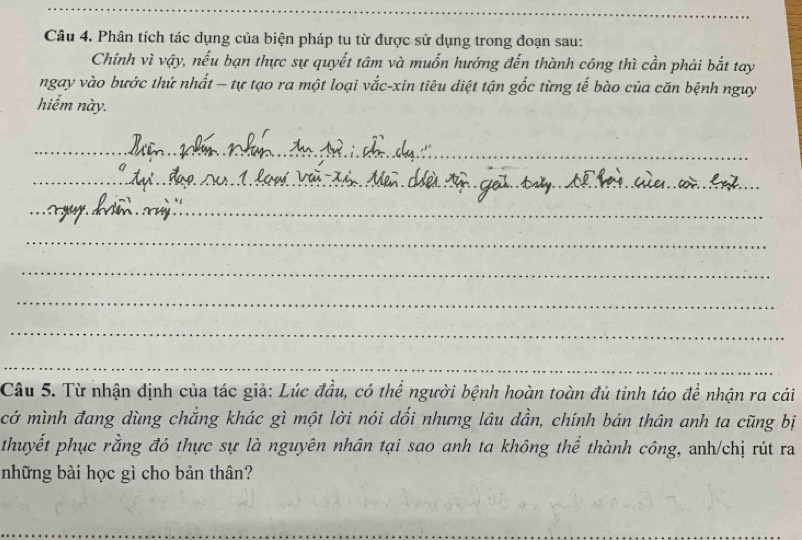 Câu 4. Phân tích tác dụng của biện pháp tu từ được sử dụng trong đoạn sau:
Chính vì vậy, nếu bạn thực sự quyết tâm và muốn hướng đến thành công thì cần phải bắt tay
ngay vào bước thứ nhất – tự tạo ra một loại vắc-xin tiêu diệt tận gốc từng tế bào của căn bệnh nguy
hiểm này.
Biện pháp tu từ: ẩn dụ "
"tự tạo ra 1 loại vắc-xin tiêu diệt tận gốc từng tế bào của căn bệnh
nguy hiểm này"
Câu 5. Từ nhận định của tác giả: Lúc đầu, có thể người bệnh hoàn toàn đủ tỉnh táo để nhận ra cái
cớ mình đang dùng chẳng khác gì một lời nói dối nhưng lâu dần, chính bản thân anh ta cũng bị
thuyết phục rằng đó thực sự là nguyên nhân tại sao anh ta không thể thành công, anh/chị rút ra
những bài học gì cho bản thân?